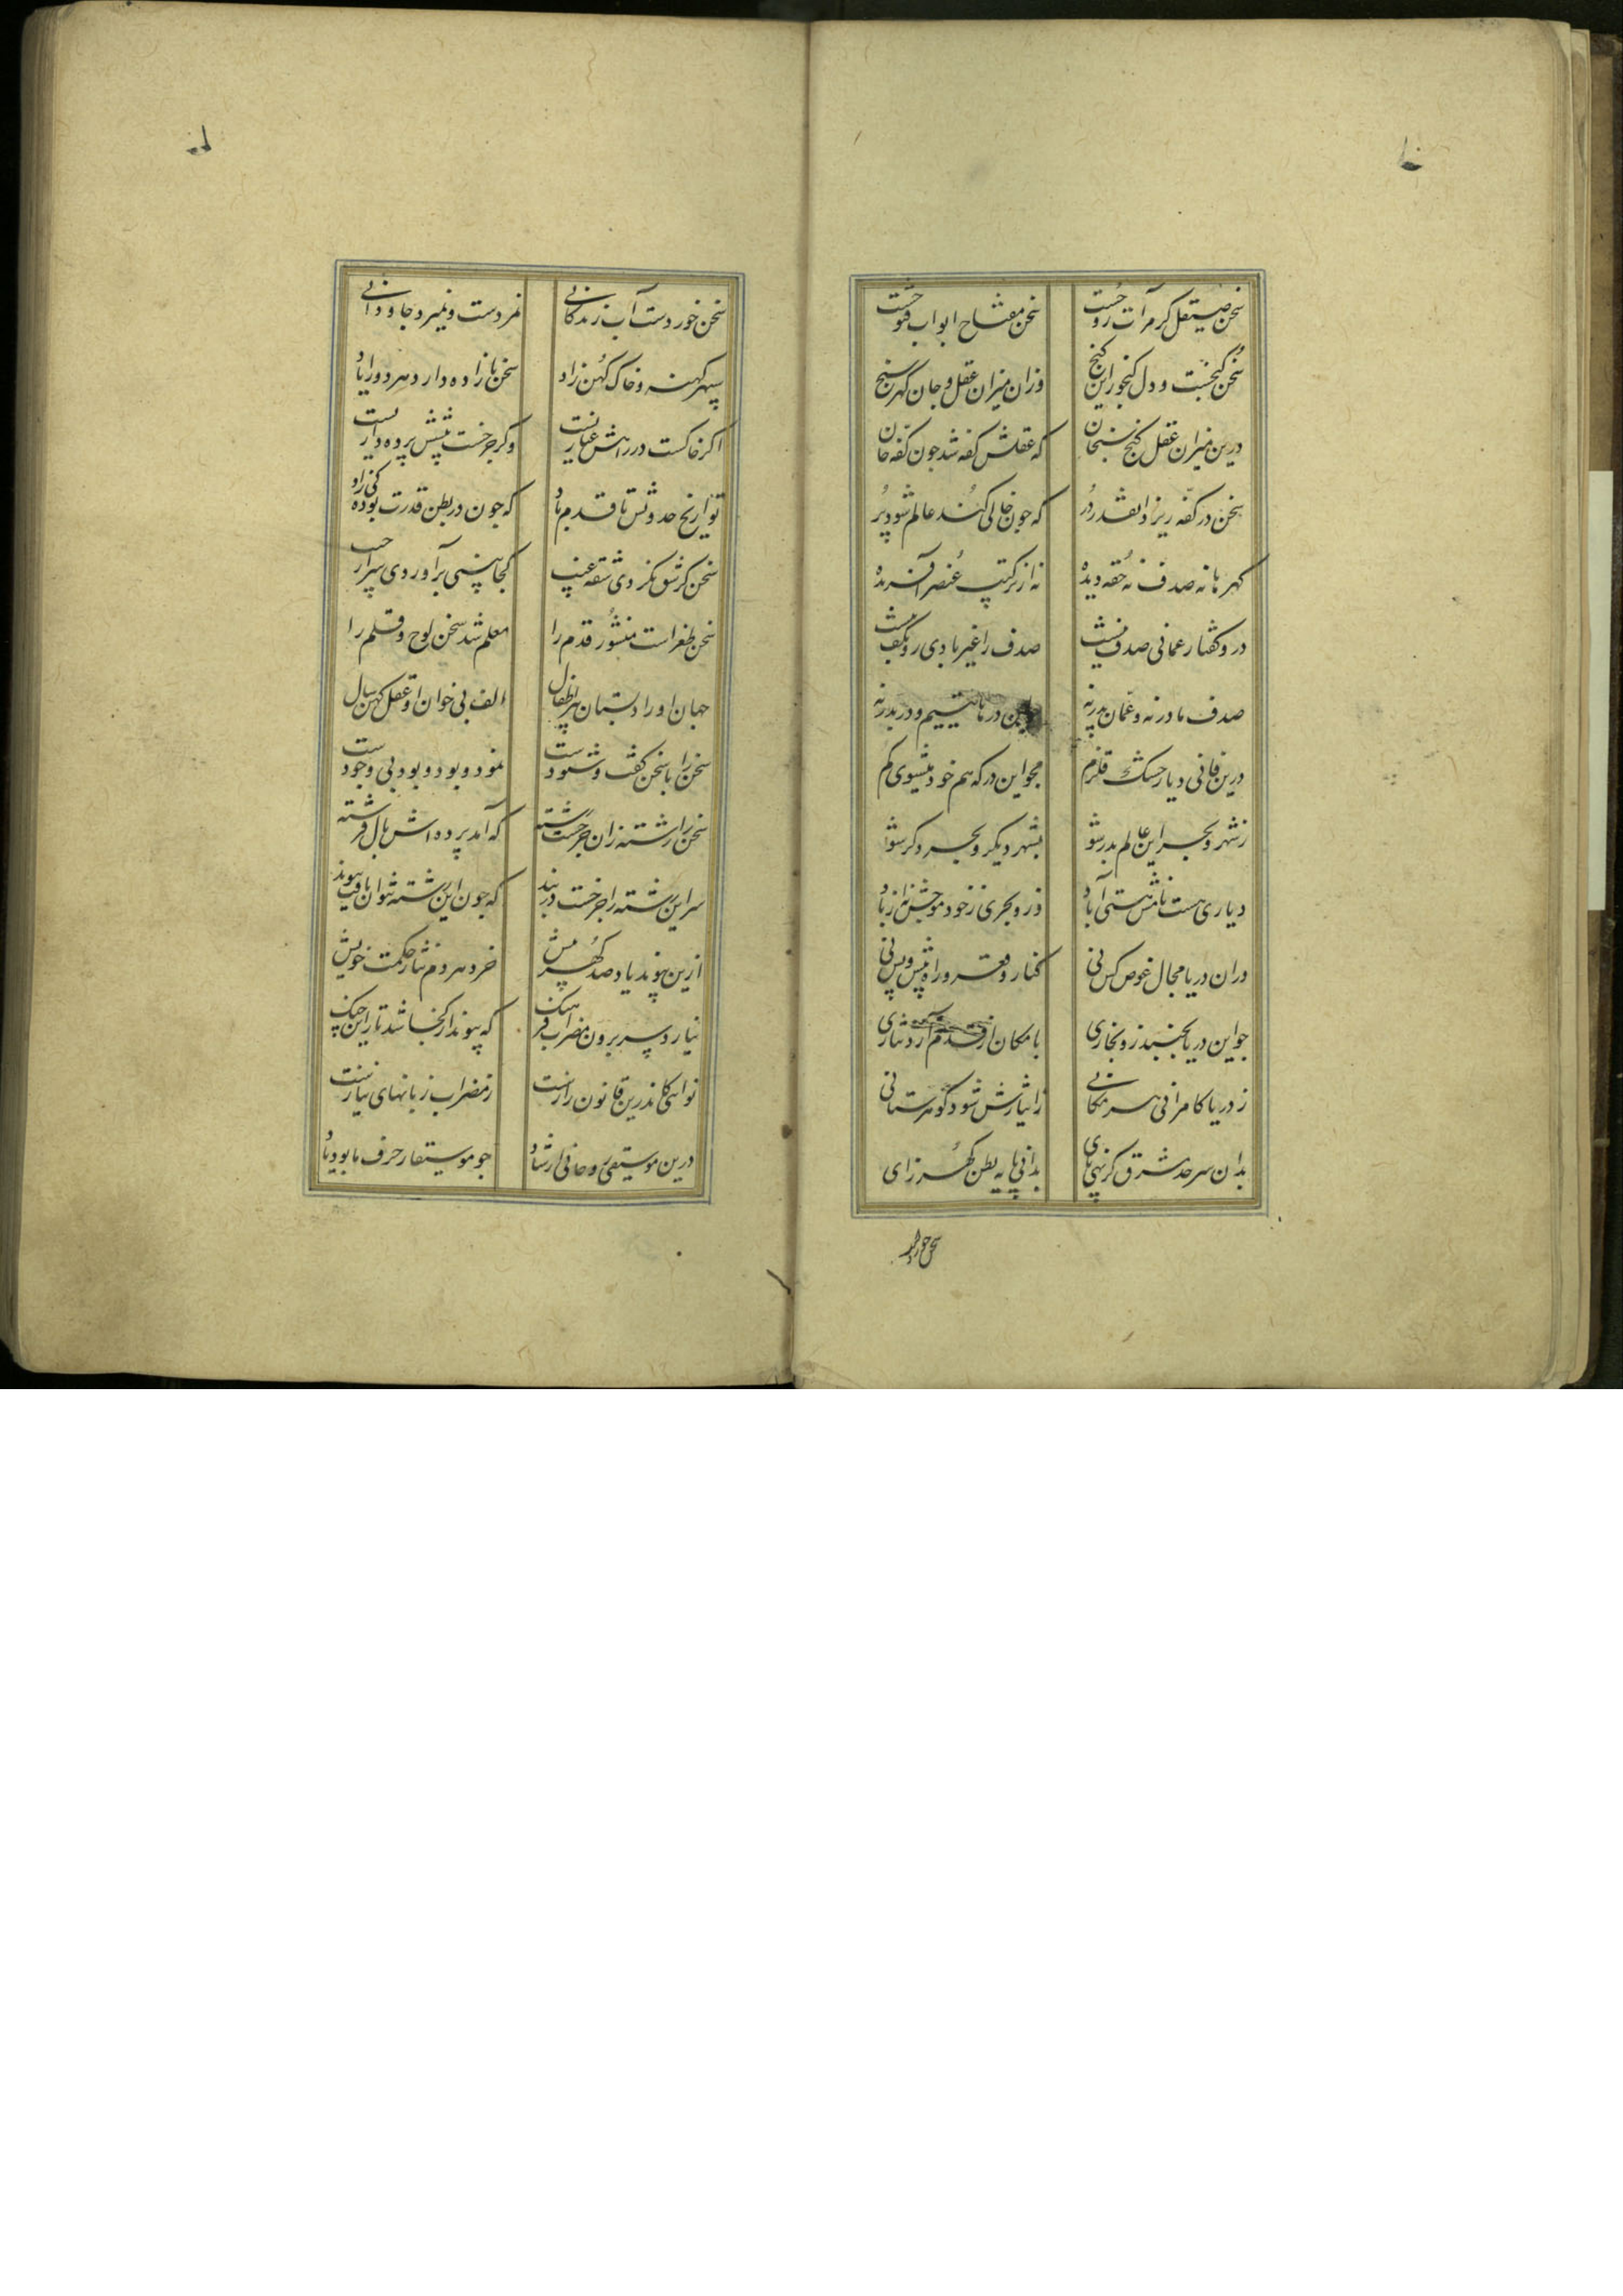 سخن صیقل کر مرآت روحست سخن مفتاح ابواب فتوحست
سخن کنجست و دل کنجور این کنج وزان میزان عقل و جان کهر سنج
درین میزان عقل کنج سنجان که عقلش کفه شد جون کفه جان
سخن در کفه ریزد انقدر در که جون خالی کند عالم شود پر
کهر ما نه صدف نه حقه دیده نه از ترکیب عنصر آفریده
در و کفتار عمانی صدف نیست صدف را غیر بادی رو بکف نیست
صدف مادر نه و عمان پدر نه این در ما یتیم و در بدر نه
درین فانی دیار خشک قلزم مجو این در که هم خود میشوی کم
زشهر و بحر این عالم بدر شو بشهر دیکر و بحر دکر شو
دیاری هست نامش هستی آباد در و بحری زخود موجش نه از باد
دران دریا مجال غوص کس نی کنار و قعر و راه پیش و پس نی
جو این دریا بجنبد زو بخاری بامکان از قدم آرد نثاری
زدریا کامرانی هر مکانی ز ایثارش شود کوهر ستانی
بدان سرحد مشرق کر نهی پای بدانی پایه بطن کهر زای
سخن خورد
سخن خوردست آب زندکانی نمردست و نمیرد جاودانی
سپهر کهنه و خاک کهن زاد سخن نازاده دارد هر دو را یاد
اکر خاکست در راهش غباریست و کر جرخست پیشش پرده داریست
تواریخ حدوثش تا قدم یاد که جون در بطن قدرت بوده کی زاد
سخن کر شق نکردی شقه غیب کجا هستی برآوردی سر از جیب
سخن طغراست منشور قدم را معلم شد سخن لوح و قلم را
جهان او را دبستان پر اطفال الف بی خوان او عقل کهن سال
سخن را با سخن کفت و شنودست نمود و بود و بود بی وجودست
سخن را رشته زان جرخست رشته که آمد پرده اش بال فرشته
سر این رشته را جرخست دربند که جون این رشته نتوان یافت پیوند
ازین پیوند یاد صد کهر بیش خرد هر دم نثار حکمت خویش
نیارد سر برون مضراب فرهنک که پیوند از کجا شد تار این جنک
نوائی کاندرین قانون رازست زمضراب زبانهای نیازست
درین موسیقی روحانی ارشاد جو موسیقار حرف ما بود باد